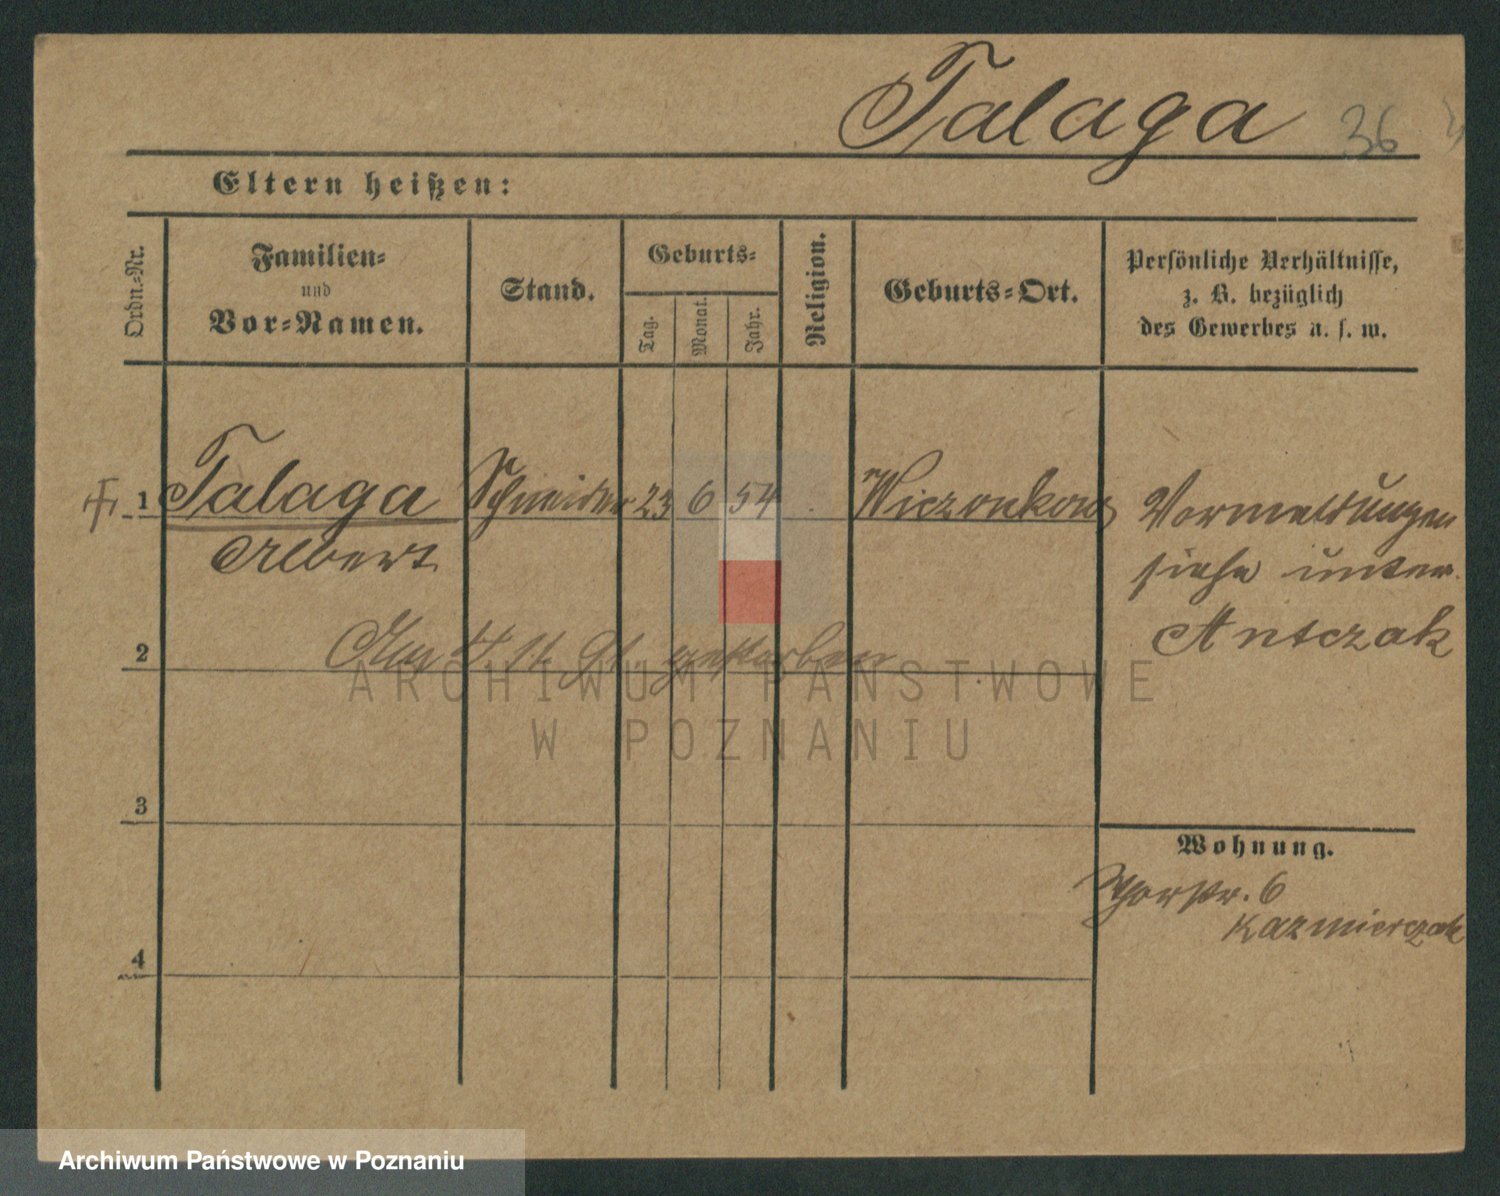 Talaga 36
Eltern heißen:
Ordn.-Nr.
Familien-
und
Vor-Namen.
Stand.
Geburts-
Tag.
Monat.
Jahr.
Religion.
Geburts-Ort.
Persönliche Verhältnisse,
z. B. bezüglich
des Gewerbes u. s. w.
1 Talaga Schneider 23 6 54
Albert
Vormeldungen
siehe unter
Antczak
2
gestorben
ARCHIWUM PAŃSTWOWE
W POZNANIU
3
Wohnung.
6
Kazmierczak
4
Archiwum Państwowe w Poznaniu